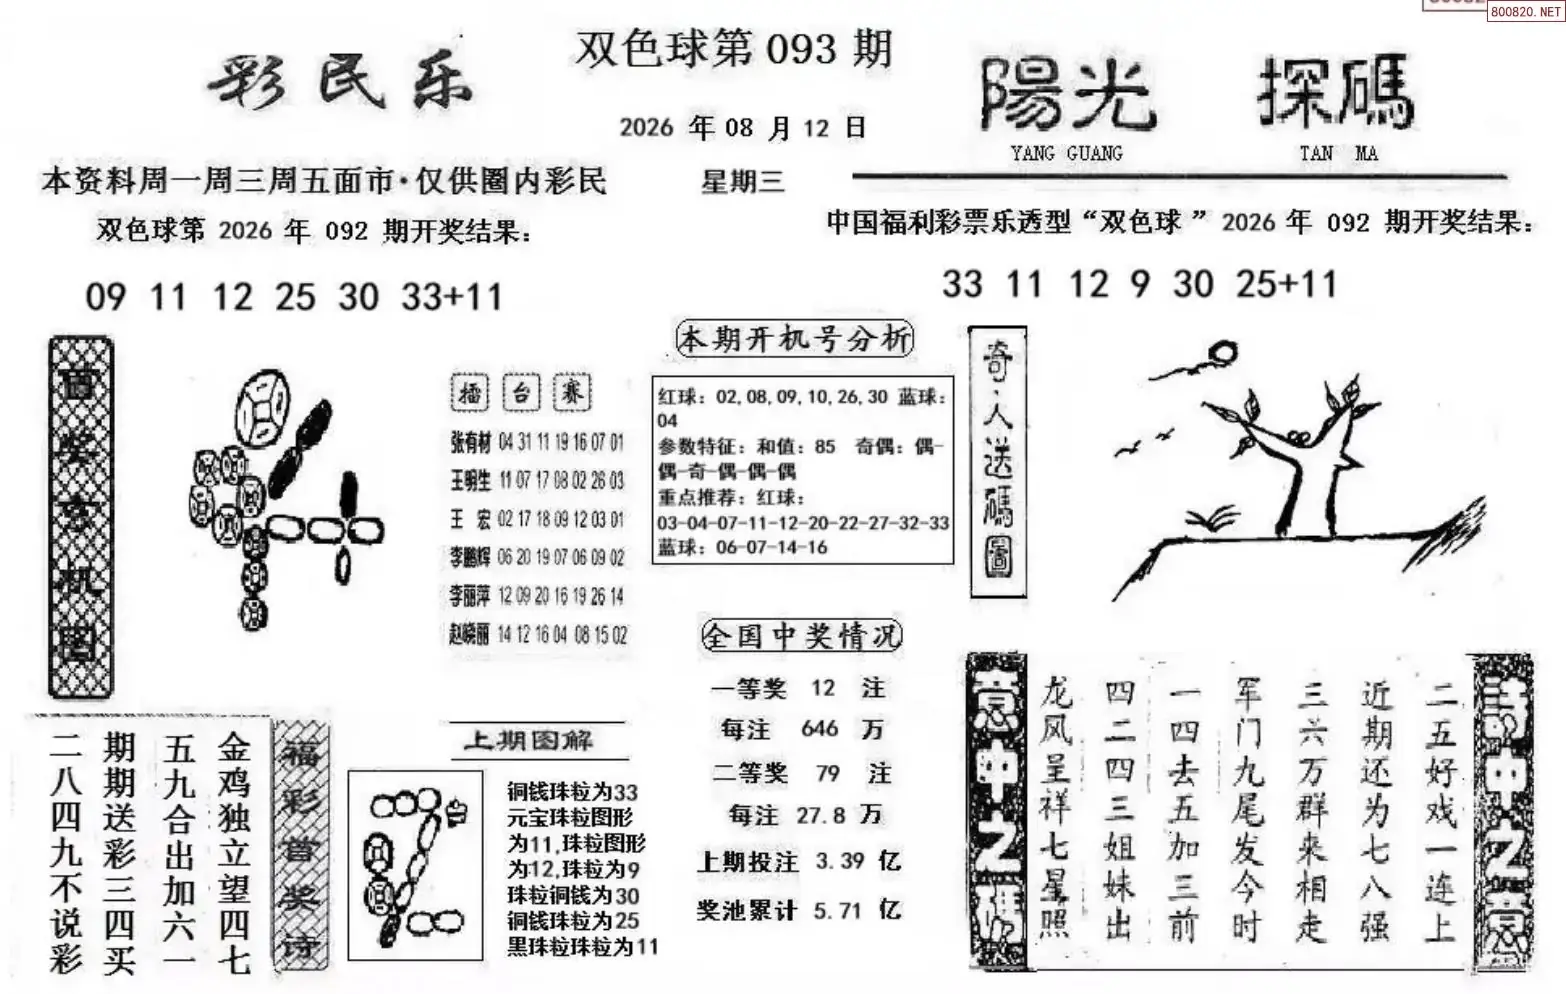 800820.NET
彩民乐
双色球第 093 期
2026 年 08 月 12 日
星期三
陽光 探碼
YANG GUANG TAN MA
本资料周一周三周五面市·仅供圈内彩民
双色球第 2026 年 092 期开奖结果:
09 11 12 25 30 33+11
中国福利彩票乐透型“双色球”2026 年 092 期开奖结果:
33 11 12 9 30 25+11
擂台赛
张有材 04 31 11 19 16 07 01
王明生 11 07 17 08 02 26 03
王 宏 02 17 18 09 12 03 01
李鹏辉 06 20 19 07 06 09 02
李丽萍 12 09 20 16 19 26 14
赵晓丽 14 12 16 04 08 15 02
本期开机号分析
红球: 02,08,09,10,26,30 蓝球:
04
参数特征: 和值: 85 奇偶: 偶-
偶-奇-偶-偶-偶
重点推荐: 红球:
03-04-07-11-12-20-22-27-32-33
蓝球: 06-07-14-16
奇·人送碼圖
全国中奖情况
一等奖 12 注
每注 646 万
二等奖 79 注
每注 27.8 万
上期投注 3.39 亿
奖池累计 5.71 亿
福彩首奖诗
金鸡独立望四七
五九合出加六一
期期送彩三四买
二八四九不说彩
上期图解
铜钱珠粒为33
元宝珠粒图形
为11,珠粒图形
为12,珠粒为9
珠粒铜钱为30
铜钱珠粒为25
黑珠粒珠粒为11
诗中之意
二五好戏一连上
近期还为七八强
三六万群来相走
军门九尾发今时
一四去五加三前
四二四三姐妹出
龙风呈祥七星照